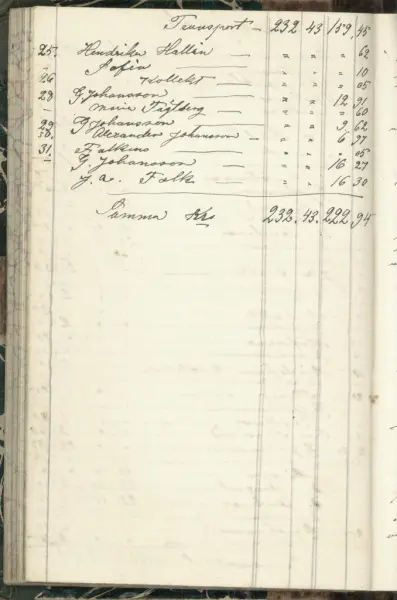 Transport - 232 43 159 45
25. Hendrika Hallin — " " " 62
– Sofia — " " " 10
26 Kollekt — " " " 05
28 G Johansson — " " 12 91
– Maria — " " " 60
29 G Johansson — " " 9 62
30. Alexander Johnsson — " " 6 97
31. Falkins — " " " 05
– G. Johansson — " " 16 27
J. A. Falk — " " 16 30
Summa Krs 232. 43. 222. 94